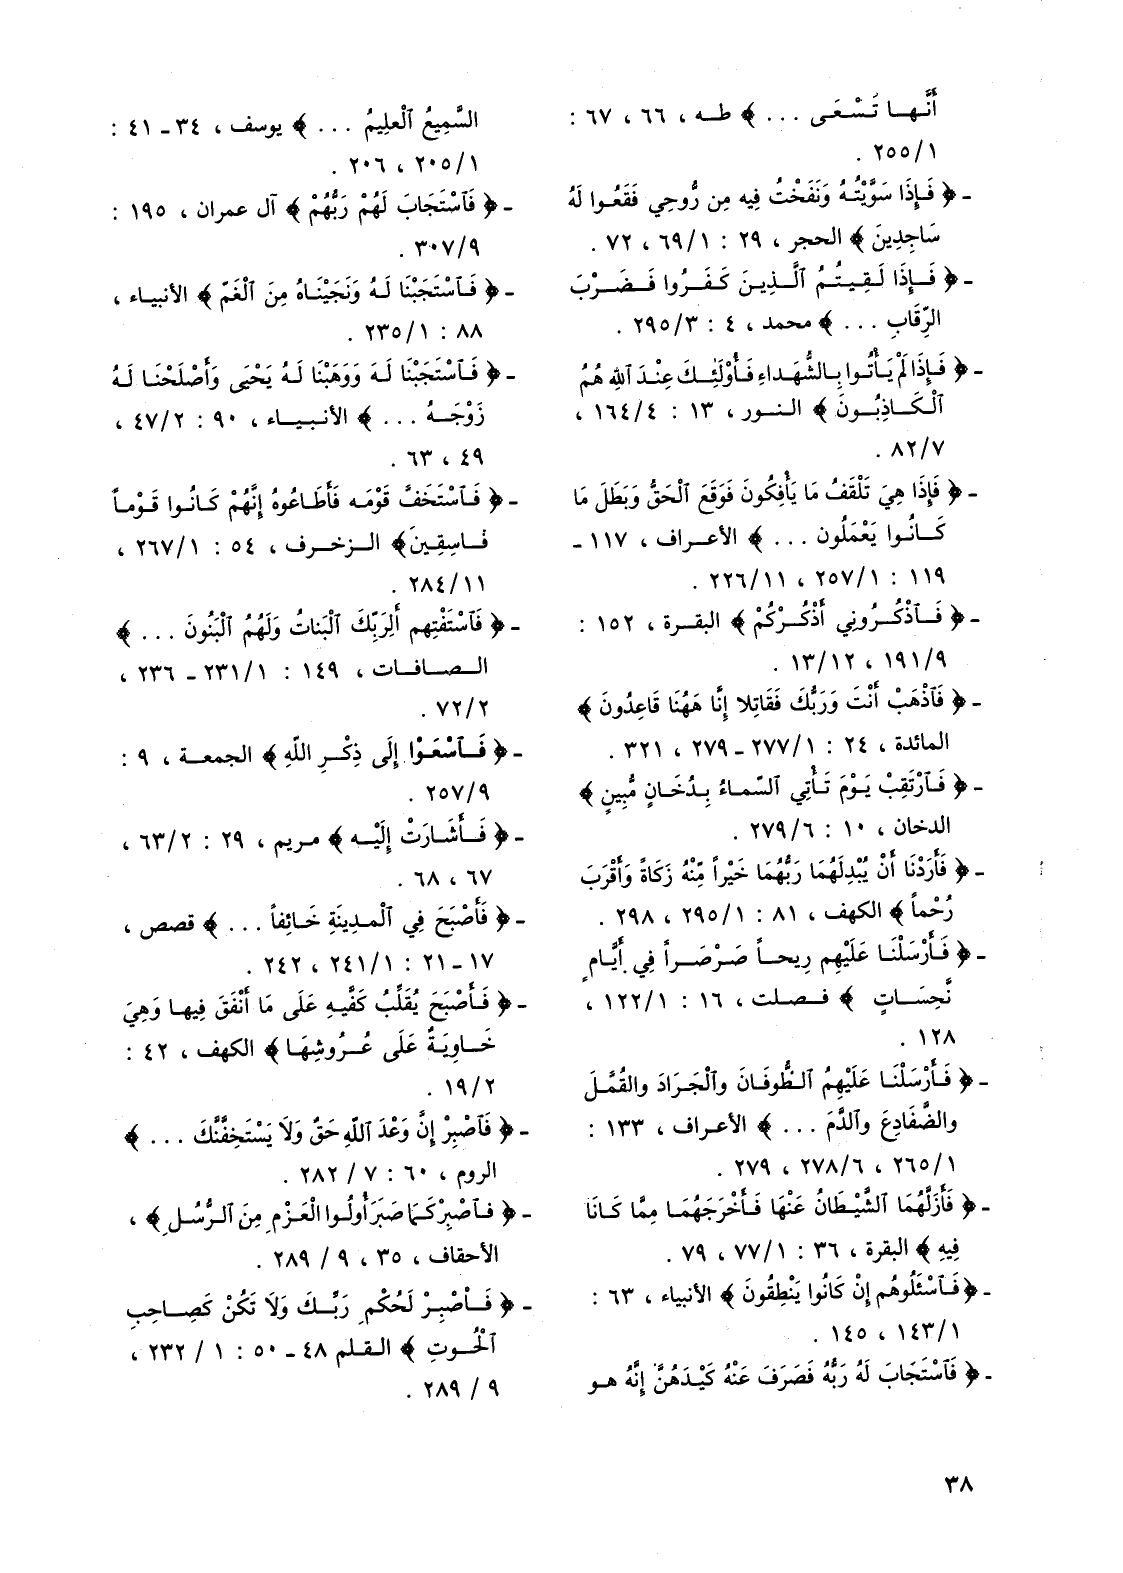 أَنَّهـا تَسْعَى ... ﴾ طـه ، ٦٦ ، ٦٧ :
٢٥٥/١ .
ـ ﴿ فَإِذَا سَوَّيْتُهُ وَنَفَخْتُ فِيهِ مِن رُّوحِي فَقَعُوا لَهُ
سَاجِدِينَ ﴾ الحجر ، ٢٩ : ٦٩/١ ، ٧٢ .
ـ ﴿ فَإِذَا لَقِيتُمُ ٱلَّذِينَ كَفَرُوا فَضَرْبَ
الرِّقَابِ ... ﴾ محمد ، ٤ : ٢٩٥/٣ .
ـ ﴿ فَإِذَا لَمْ يَأْتُوا بِالشُّهَداءِ فَأُوْلَئِكَ عِنْدَ ٱللهِ هُمُ
ٱلْكَاذِبُونَ ﴾ النور ، ١٣ : ١٦٤/٤ ،
٨٢/٧ .
ـ ﴿ فَإِذَا هِيَ تَلْقَفُ مَا يَأْفِكُونَ فَوَقَعَ الْحَقُّ وَبَطَلَ مَا
كَانُوا يَعْمَلُون ... ﴾ الأعراف ، ١١٧ ـ
١١٩ : ٢٥٧/١ ، ٢٢٦/١١ .
ـ ﴿ فَٱذْكُرُونِي أَذْكُرْكُمْ ﴾ البقرة ، ١٥٢ :
١٩١/٩ ، ١٣/١٢ .
ـ ﴿ فَٱذْهَبْ أَنْتَ وَرَبُّكَ فَقَاتِلا إِنَّا هَهُنَا قَاعِدُونَ ﴾
المائدة ، ٢٤ : ٢٧٧/١ ـ ٢٧٩ ، ٣٢١ .
ـ ﴿ فَٱرْتَقِبْ يَوْمَ تَأْتِي السَّماءُ بِدُخَانٍ مُّبِينٍ ﴾
الدخان ، ١٠ : ٢٧٩/٦ .
ـ ﴿ فَأَرَدْنَا أَنْ يُبْدِلَهُمَا رَبُّهُمَا خَيْراً مِّنْهُ زَكَاةً وَأَقْرَبَ
رُحْماً ﴾ الكهف ، ٨١ : ٢٩٥/١ ، ٢٩٨ .
ـ ﴿ فَأَرْسَلْنَا عَلَيْهِم رِيحاً صَرْصَراً فِي أَيَّامٍ
نَّحِسَاتٍ ﴾ فصلت ، ١٦ : ١٢٢/١ ،
١٢٨ .
ـ ﴿ فَأَرْسَلْنَا عَلَيْهِمُ الطُّوفَانَ وٱلْجَرَادَ والقُمَّلَ
والضَّفَادِعَ وٱلدَّمَ ... ﴾ الأعراف ، ١٣٣ :
٢٦٥/١ ، ٢٧٨/٦ ، ٢٧٩ .
ـ ﴿ فَأَزَلَّهُمَا ٱلشَّيْطَانُ عَنْهَا فَأَخْرَجَهُمَا مِمَّا كَانَا
فِيهِ ﴾ البقرة ، ٣٦ : ٧٧/١ ، ٧٩ .
ـ ﴿ فَٱسْئَلُوهُم إِنْ كَانُوا يَنْطِقُونَ ﴾ الأنبياء ، ٦٣ :
١٤٣/١ ، ١٤٥ .
ـ ﴿ فَٱسْتَجَابَ لَهُ رَبُّهُ فَصَرَفَ عَنْهُ كَيْدَهُنَّ إِنَّهُ هو
السَّمِيعُ ٱلْعلِيمُ ... ﴾ يوسف ، ٣٤ ـ ٤١ :
٢٠٥/١ ، ٢٠٦ .
ـ ﴿ فَٱسْتَجَابَ لَهُمْ رَبُّهُمْ ﴾ آل عمران ، ١٩٥ :
٣٠٧/٩ .
ـ ﴿ فَٱسْتَجَبْنَا لَهُ وَنَجَيْنَاهُ مِنَ ٱلْغَمّ ﴾ الأنبياء ،
٨٨ : ٢٣٥/١ .
ـ ﴿ فَٱسْتَجَبْنَا لَهُ وَوَهَبْنَا لَهُ يَحْيَى وَأَصْلَحْنَا لَهُ
زَوْجَهُ ... ﴾ الأنبياء ، ٩٠ : ٤٧/٢ ،
٤٩ ، ٦٣ .
ـ ﴿ فَٱسْتَخَفَّ قَوْمَه فَأَطَاعُوهُ إِنَّهُمْ كَانُوا قَوْماً
فاسِقِينَ ﴾ الزخرف ، ٥٤ : ٢٦٧/١ ،
٢٨٤/١١ .
ـ ﴿ فَٱسْتَفْتِهم أَلِرَبِّكَ ٱلْبَناتُ وَلَهُمُ ٱلْبَنُونَ ... ﴾
الصافات ، ١٤٩ : ٢٣١/١ ـ ٢٣٦ ،
٧٢/٢ .
ـ ﴿ فَٱسْعَوْا إِلَى ذِكْرِ اللّهِ ﴾ الجمعة ، ٩ :
٢٥٧/٩ .
ـ ﴿ فَأَشَارَتْ إِلَيْه ﴾ مريم ، ٢٩ : ٦٣/٢ ،
٦٧ ، ٦٨ .
ـ ﴿ فَأَصْبَحَ فِي ٱلْمدِينَةِ خَائِفاً ... ﴾ قصص ،
١٧ ـ ٢١ : ٢٤١/١ ، ٢٤٢ .
ـ ﴿ فَأَصْبَحَ يُقَلِّبُ كَفَّيهِ عَلَى مَا أَنْفَقَ فِيها وَهِيَ
خَاوِيَةٌ عَلَى عُرُوشِهَا ﴾ الكهف ، ٤٢ :
١٩/٢ .
ـ ﴿ فَٱصْبِرْ إِنَّ وَعْدَ ٱللّهِ حَقٌ وَلَا يَسْتَخِفَّنَّكَ ... ﴾
الروم ، ٦٠ : ٧ / ٢٨٢ .
ـ ﴿ فَٱصْبِرْ كَمَا صَبَرَ أُولُوا الْعَزْمِ مِنَ ٱلرُّسُلِ ﴾ ،
الأحقاف ، ٣٥ ، ٩ / ٢٨٩ .
ـ ﴿ فَٱصْبِرْ لَحُكْمِ رَبِّكَ وَلَا تَكُنْ كَصَاحِبِ
ٱلْحُوتِ ﴾ القلم ٤٨ ـ ٥٠ : ١ / ٢٣٢ ،
٩ / ٢٨٩ .
٣٨